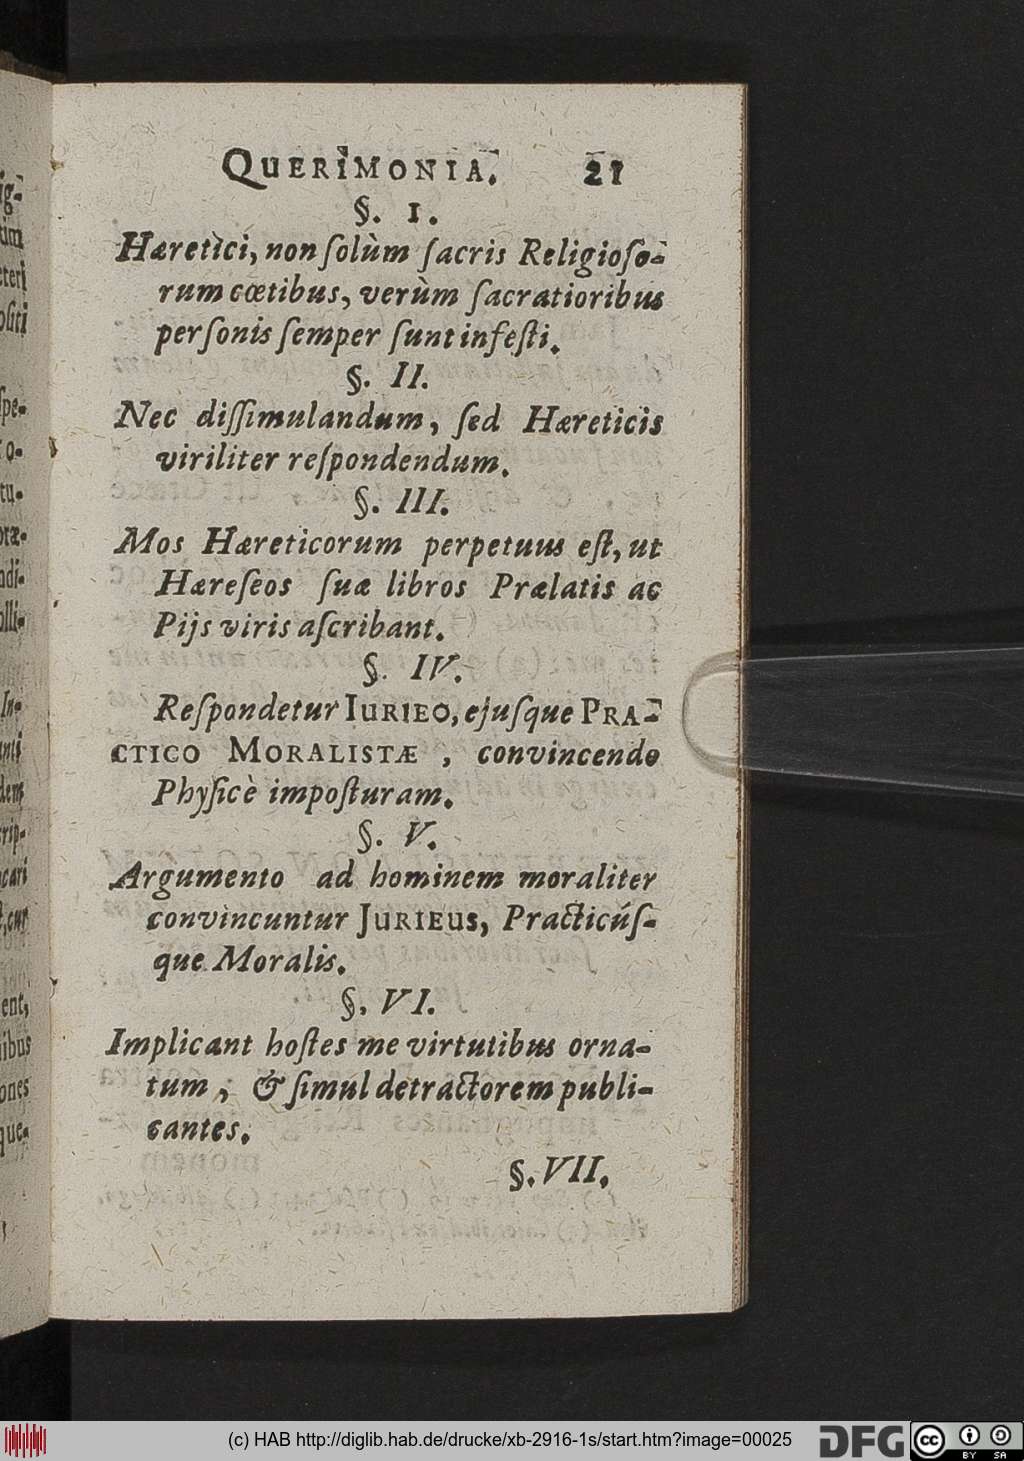 QUERIMONIA. 21
§. I.
Hæretici, non ſolùm ſacris Religioſo-
rum cœtibus, verùm ſacratioribus
perſonis ſemper ſunt infeſti.
§. II.
Nec diſſimulandum, ſed Hæreticis
viriliter reſpondendum.
§. III.
Mos Hæreticorum perpetuus eſt, ut
Hæreſeos ſuæ libros Prælatis ac
Pijs viris aſcribant.
§. IV.
Reſpondetur IURIEO, ejuſque PRA-
CTICO MORALISTÆ, convincendo
Phyſicè impoſturam.
§. V.
Argumento ad hominem moraliter
convincuntur JURIEUS, Practicúſ-
que Moralis.
§. VI.
Implicant hoſtes me virtutibus orna-
tum, & ſimul detractorem publi-
cantes.
§. VII.
(c) HAB http://diglib.hab.de/drucke/xb-2916-1s/start.htm?image=00025
DFG
cc
BY SA